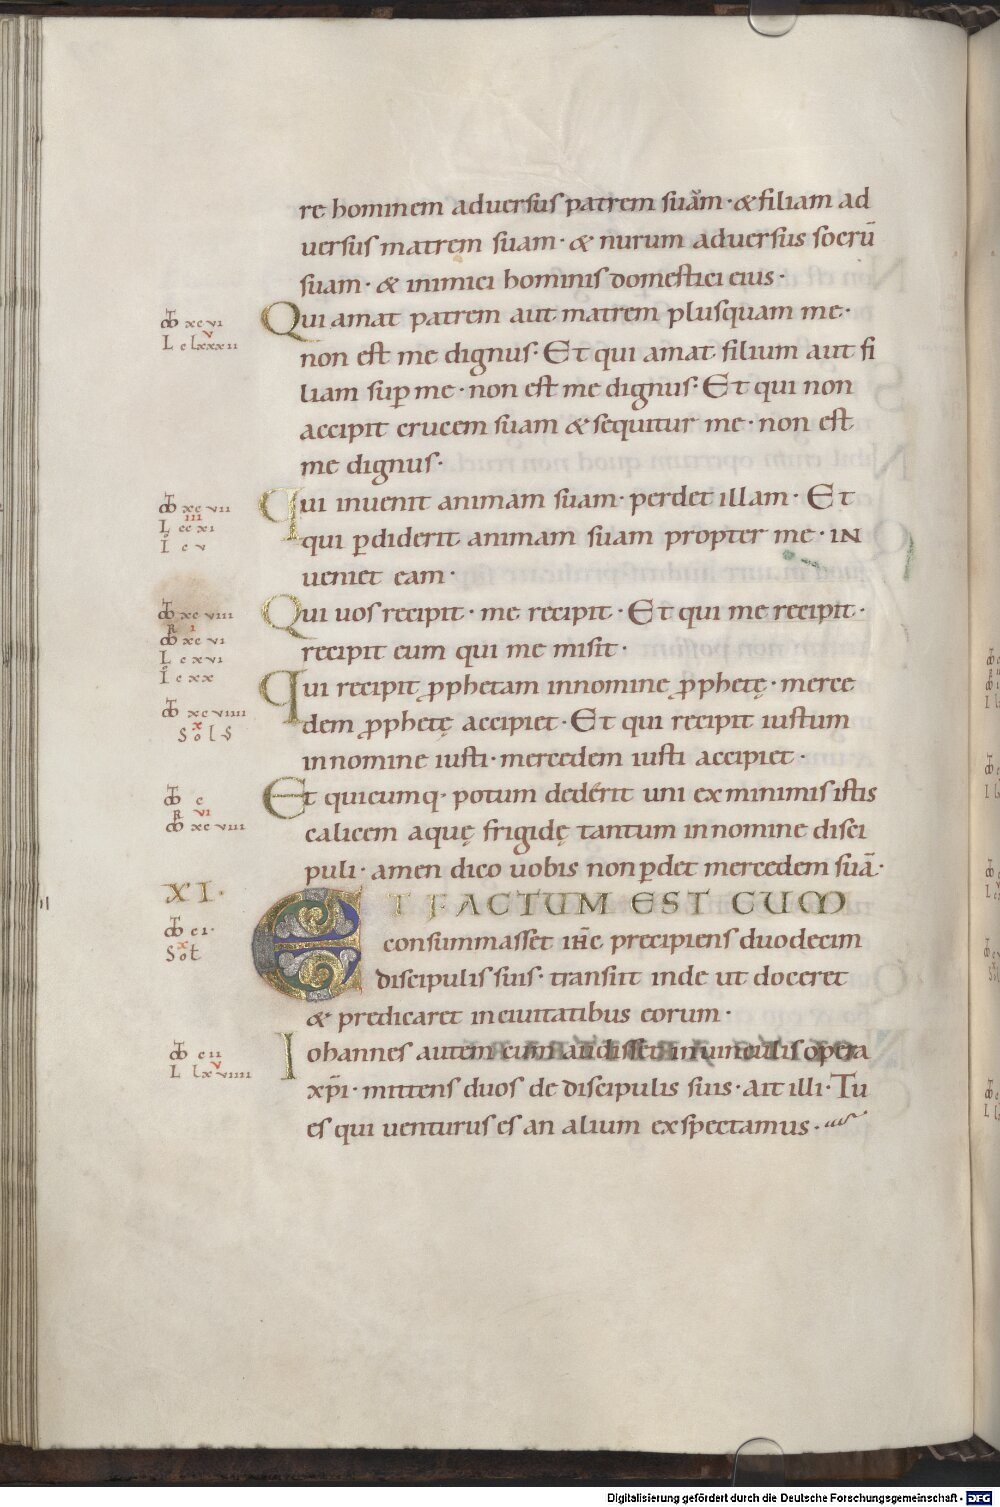 re hominem aduersus patrem suũm · & filiam ad
uersus matrem suam · & nurum aduersus socrū
suam · & inimici hominis domestici eius ·
Qui amat patrem aut matrem plusquam me ·
non est me dignus · Et qui amat filium aut fi
liam sup̄ me · non est me dignus · Et qui non
accipit crucem suam & sequitur me · non est
me dignus ·
Qui inuenit animam suam · perdet illam · Et
qui p̱diderit animam suam propter me · IN
ueniet eam ·
Qui uos recipit · me recipit · Et qui me recipit ·
recipit eum qui me misit ·
Qui recipit ꝓphetam innomine ꝓphetę · merce
dem ꝓphetę accipiet · Et qui recipit iustum
innomine iusti · mercedem iusti accipiet ·
Et quicumq· potum dedérit uni exminimis istis
calicem aquę frigidę tantum innomine disci
puli · amen dico uobis non p̱det mercedem suā ·
XI ·
ET FACTUM EST CUM
consummasset ihc̄ precipiens duodecim
discipulis suis · transiit inde ut doceret
& predicaret inciuitatibus eorum ·
Iohannes autem cum audisset inuinculis opera
xp̄i · mittens duos de discipulis suis · ait illi · Tu
es qui uenturus es an alium exspectamus ·
Digitalisierung gefördert durch die Deutsche Forschungsgemeinschaft - DFG